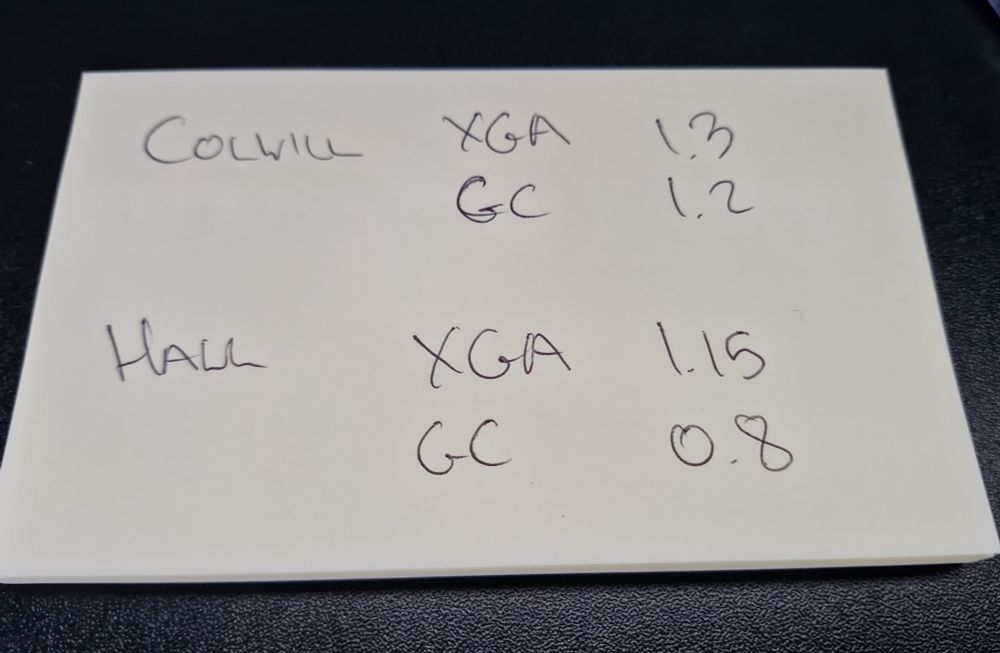 COLWILL XGA 1.3
GC 1.2
HALL XGA 1.15
GC 0.8